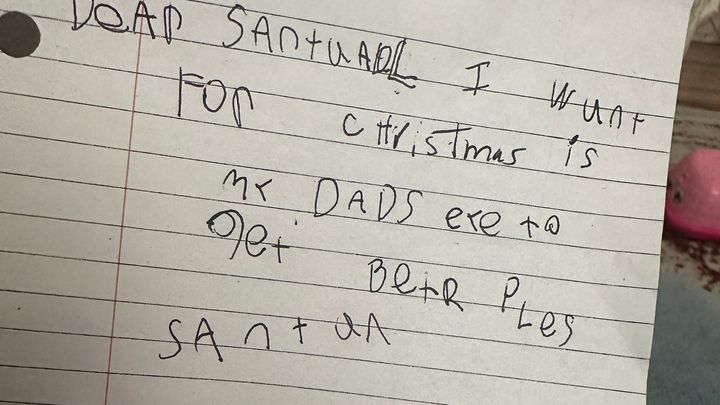 DeAr SAntuALL I wunt
For christmas is
my DADS ere to
get BetR PLes
SAntun